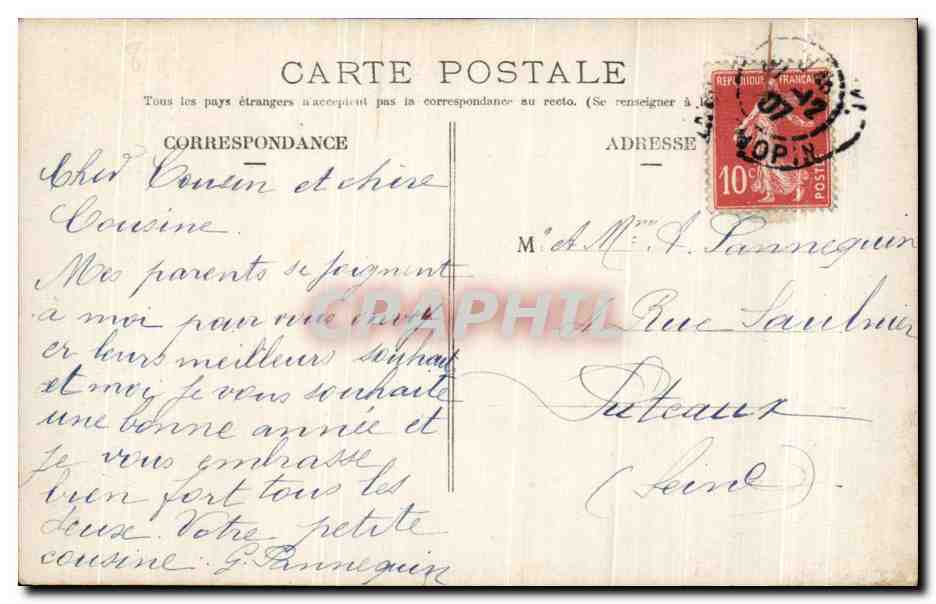 CARTE POSTALE
Tous les pays étrangers n'acceptent pas la correspondance au recto. (Se renseigner à l
CORRESPONDANCE
Cher Cousin et chère
Cousine.
Mes parents se joignent
à moi pour vous envoy
er leurs meilleurs souhait
et moi je vous souhaite
une bonne année et
je vous embrasse
bien fort tous les
deux. Votre petite
cousine. G. Pannequin
ADRESSE
REPUBLIQUE FRANÇAISE
10c
POSTES
07
CHOPIN
M. et Mme A. Pannequin
Rue Saulnier
Puteaux
(Seine)
CPAPHIL